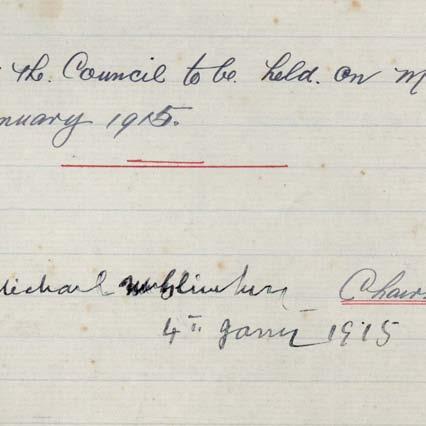 the. Council to be. held. on M
nuary 1915.
Michael Chair
4th Janry 1915